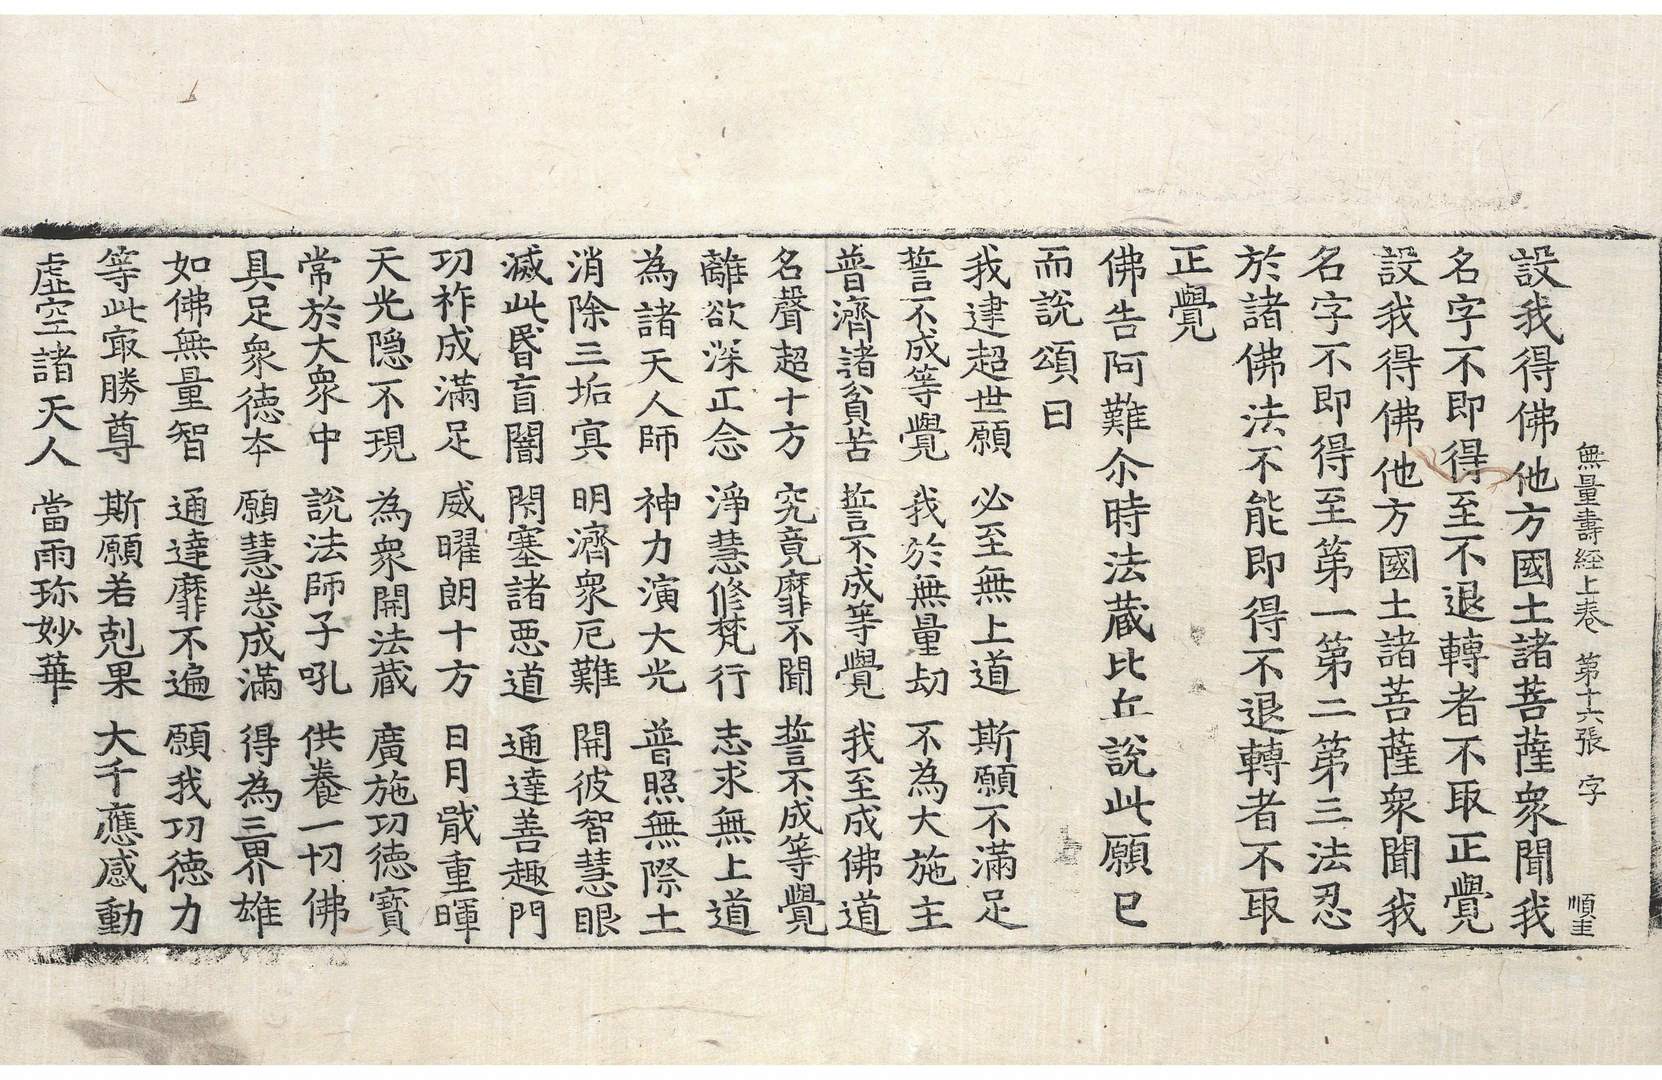 無量壽經上卷 第十六張 字 順圭
設我得佛他方國土諸菩薩衆聞我
名字不即得至不退轉者不取正覺
設我得佛他方國土諸菩薩衆聞我
名字不即得至第一第二第三法忍
於諸佛法不能即得不退轉者不取
正覺
佛告阿難尒時法蔵比丘說此願已
而說頌曰
我建超世願 必至無上道 斯願不滿足
誓不成等覺 我於無量劫 不為大施主
普濟諸貧苦 誓不成等覺 我至成佛道
名聲超十方 究竟靡不聞 誓不成等覺
離欲深正念 淨慧修梵行 志求無上道
為諸天人師 神力演大光 普照無際土
消除三垢冥 明濟衆厄難 開彼智慧眼
滅此昏盲闇 閇塞諸惡道 通達善趣門
功祚成滿足 威曜朗十方 日月戢重暉
天光隱不現 為衆開法蔵 廣施功德寶
常於大衆中 說法師子吼 供養一切佛
具足衆德本 願慧悉成滿 得為三界雄
如佛無量智 通達靡不遍 願我功德力
等此㝡勝尊 斯願若剋果 大千應感動
虛空諸天人 當雨珎妙華